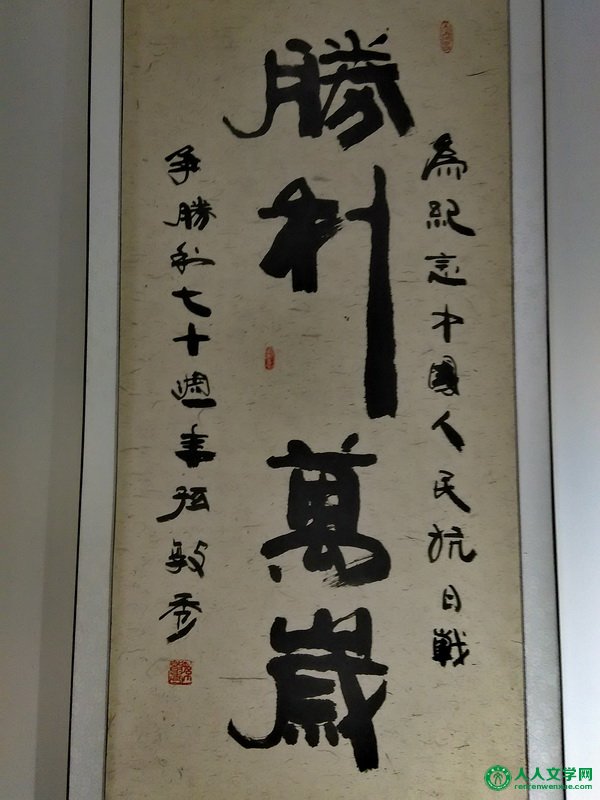 勝利萬歲
為紀念中國人民抗日戰
爭勝利七十週年張敏秀
人人文学网
renrenwenxue.com